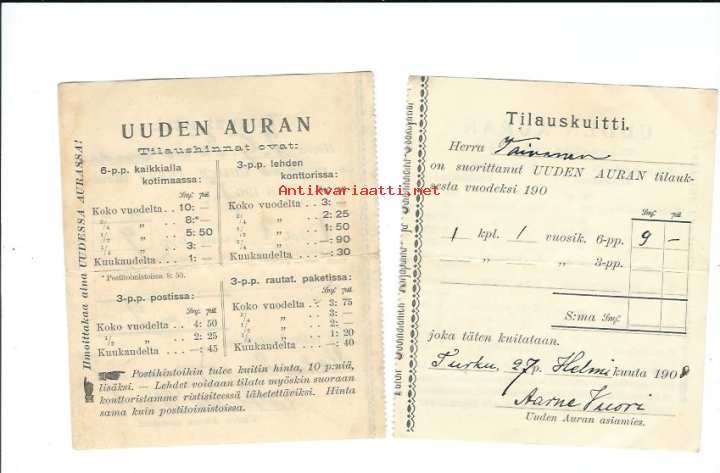 Ilmoittakaa aina UUDESSA AURASSA!
UUDEN AURAN
Tilaushinnat ovat:
6-p.p. kaikkialla
kotimaassa:
Smk. pni.
Koko vuodelta . . 10: —
3/4 „ 8:*—
1/2 „ 5: 50
1/4 „ 3: —
Kuukaudelta . . 1: —
* Postitoimistoissa 8: 50.
3-p.p. lehden
konttorissa:
Koko vuodelta . . 3: —
3/4 „ 2: 25
1/2 „ 1: 50
1/4 „ —: 90
Kuukaudelta . . —: 30
3-p.p. postissa:
Smk. pni.
Koko vuodelta . . 4: 50
1/2 „ . . 2: 25
Kuukaudelta . . —: 45
3-p.p. rautat. paketissa:
Smk. pni.
Koko vuodelta . . 3: 75
3/4 „ . . 3: —
1/2 „ . . 2: —
1/4 „ . . 1: 20
Kuukaudelta . . —: 40
Postihintoihin tulee kuitin hinta, 10 p:niä,
lisäksi. — Lehdet voidaan tilata myöskin suoraan
konttoristamme ristisiteessä lähetettäviksi. Hinta
sama kuin postitoimistoissa.
Antikvariaatti.net
Tilauskuitti.
Herra Toivonen
on suorittanut UUDEN AURAN tilauk-
sesta vuodeksi 190
Smk. pni.
1 kpl. 1 vuosik. 6-pp. 9 —
„ „ „ 3-pp.
S:ma
joka täten kuitataan.
Turku, 27 p. Helmi kuuta 1908
Aarne Vuori
Uuden Auran asiamies.